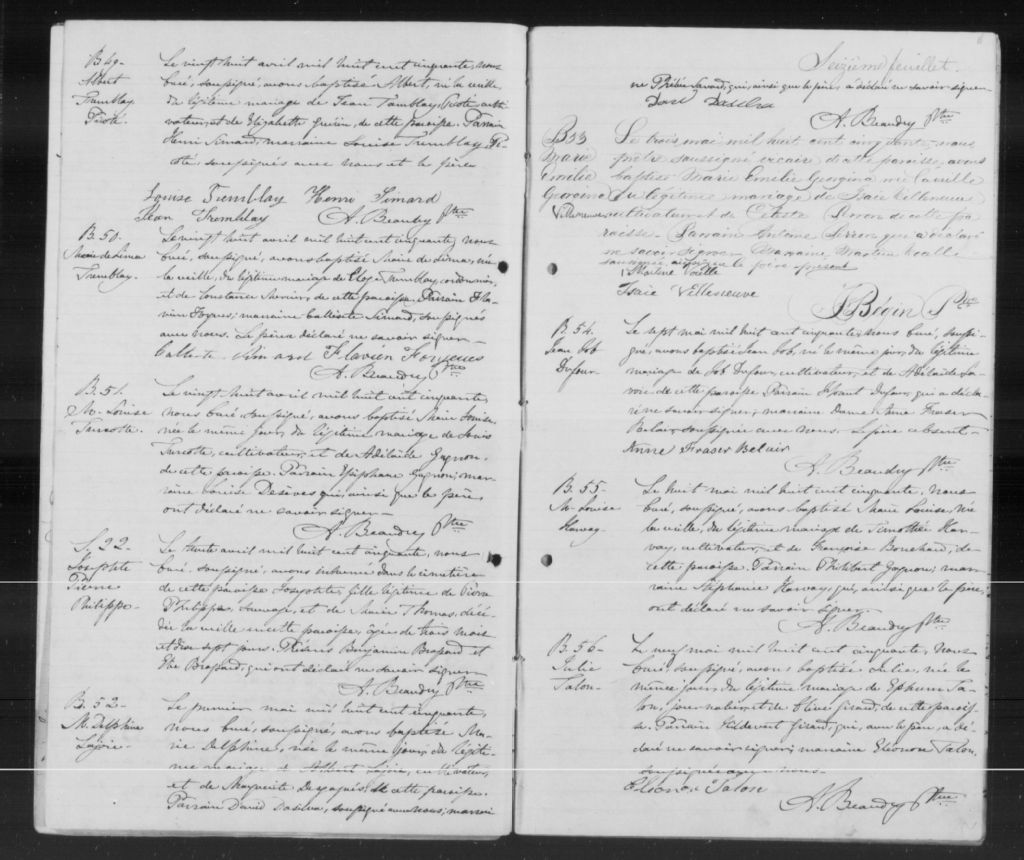 B. 49-
Albert
Tremblay
Picoté.
Le vingt huit avril mil huit cent cinquante, nous
curé, soussigné, avons baptisé Albert, né la veille,
du légitime mariage de Jean Tremblay, Picoté, culti-
vateur, et de Elizabette Guérin, de cette paroisse. Parrain
Henri Simard, marraine Louise Tremblay Pi-
coté, soussignés avec nous et le père
Louise Tremblay Henri Simard
Jean Tremblay A. Beaudry Ptre
B. 50.
Marie de Lima
Tremblay.
Le vingt huit avril mil huit cent cinquante, nous
curé, soussigné, avons baptisé Marie de Lima, née
la veille, du légitime mariage de Eloge Tremblay, cordonnier,
et de Constance Mercier, de cette paroisse. Parrain Fla-
vien Forgues; marraine Calixte Simard, soussignés
avec nous. Le père a déclaré ne savoir signer-
Calixte Simard Flavien Forgues
A. Beaudry Ptre
B. 51.
M. Louise
Turcotte.
Le vingt huit avril mil huit cent cinquante,
nous curé, soussigné, avons baptisé Marie Louise,
née le même jour, du légitime mariage de Louis
Turcotte, cultivateur, et de Adélaïde Gagnon,
de cette paroisse. Parrain Epiphane Gagnon; mar-
raine Louise Desèves qui, ainsi que le père,
ont déclaré ne savoir signer-
A. Beaudry Ptre
S. 22-
Josephte
Pierre
Philippe-
Le trente avril mil huit cent cinquante, nous
curé, soussigné, avons inhumé dans le cimetière
de cette paroisse Josephte, fille légitime de Pierre
Philippe, Sauvage, et de Marie Thomas, décé-
dée la veille en cette paroisse, âgée de trois mois
et dix sept jours. Présens Benjamin Brassard et
Brassard, qui ont déclaré ne savoir signer-
A. Beaudry Ptre
B. 52-
M. Delphine
Lajoie-
Le premier mai mil huit cent cinquante,
nous curé, soussigné, avons baptisé Ma-
rie Delphine, née le même jour, du légiti-
me mariage de Albert Lajoie, cultivateur,
et de Marguerite Desgagnés de cette paroisse.
Parrain David Dasilva, soussigné avec nous; marrai-
Seizième feuillet.
ne Phébée Savard, qui, ainsi que le père, a déclaré ne savoir signer.
Davi Dasilva
A. Beaudry Ptre
B 53
Marie
Emélie
Georgina
Villeneuve
Le trois mai mil huit cent cinquante nous
prêtre soussigné vicaire de cette paroisse, avons
baptisé Marie Emélie Georgina née la veille
du légitime mariage de Isaïe Villeneuve
cultivateur et de Céleste Simon de cette pa-
roisse. Parrain Antoine Simon qui a déclaré
ne savoir signer Marraine Martine Vealle
soussignée ainsi que le père présent
Martine Vealle
Isaïe Villeneuve
J. Bégin Ptre
B. 54-
Jean Job
Dufour-
Le sept mai mil huit cent cinquante, nous curé, soussi-
gné, avons baptisé Jean Job, né le même jour, du légitime
mariage de Job Dufour, cultivateur, et de Adélaïde Sa-
voie de cette paroisse Parrain Ipaul Dufour, qui a décla-
ré ne savoir signer; marraine Dame Anne Fraser
Belair soussignée avec nous. Le père absent-
Anne Fraser Belair
A. Beaudry Ptre
B. 55-
M. Louise
Harvay-
Le huit mai mil huit cent cinquante, nous
curé, soussigné, avons baptisé Marie Louise, née
la veille, du légitime mariage de Timothée Har-
vay, cultivateur, et de Françoise Bouchard, de
cette paroisse. Parrain Philibert Gagnon; mar-
raine Stéphanie Harvay, qui, ainsi que le père,
ont déclaré ne savoir signer-
A. Beaudry Ptre
B. 56-
Julie
Talon-
Le neuf mai mil huit cent cinquante, nous
curé, soussigné, avons baptisé Julie, née le
même jour, du légitime mariage de Ephrem Ta-
lon, journalier, et de Olive Girard, de cette parois-
se. Parrain Hildevert Girard, qui, avec le père, a dé-
claré ne savoir signer; marraine Eléonore Talon
soussignée avec nous-
Eléonor Talon
A. Beaudry Ptre